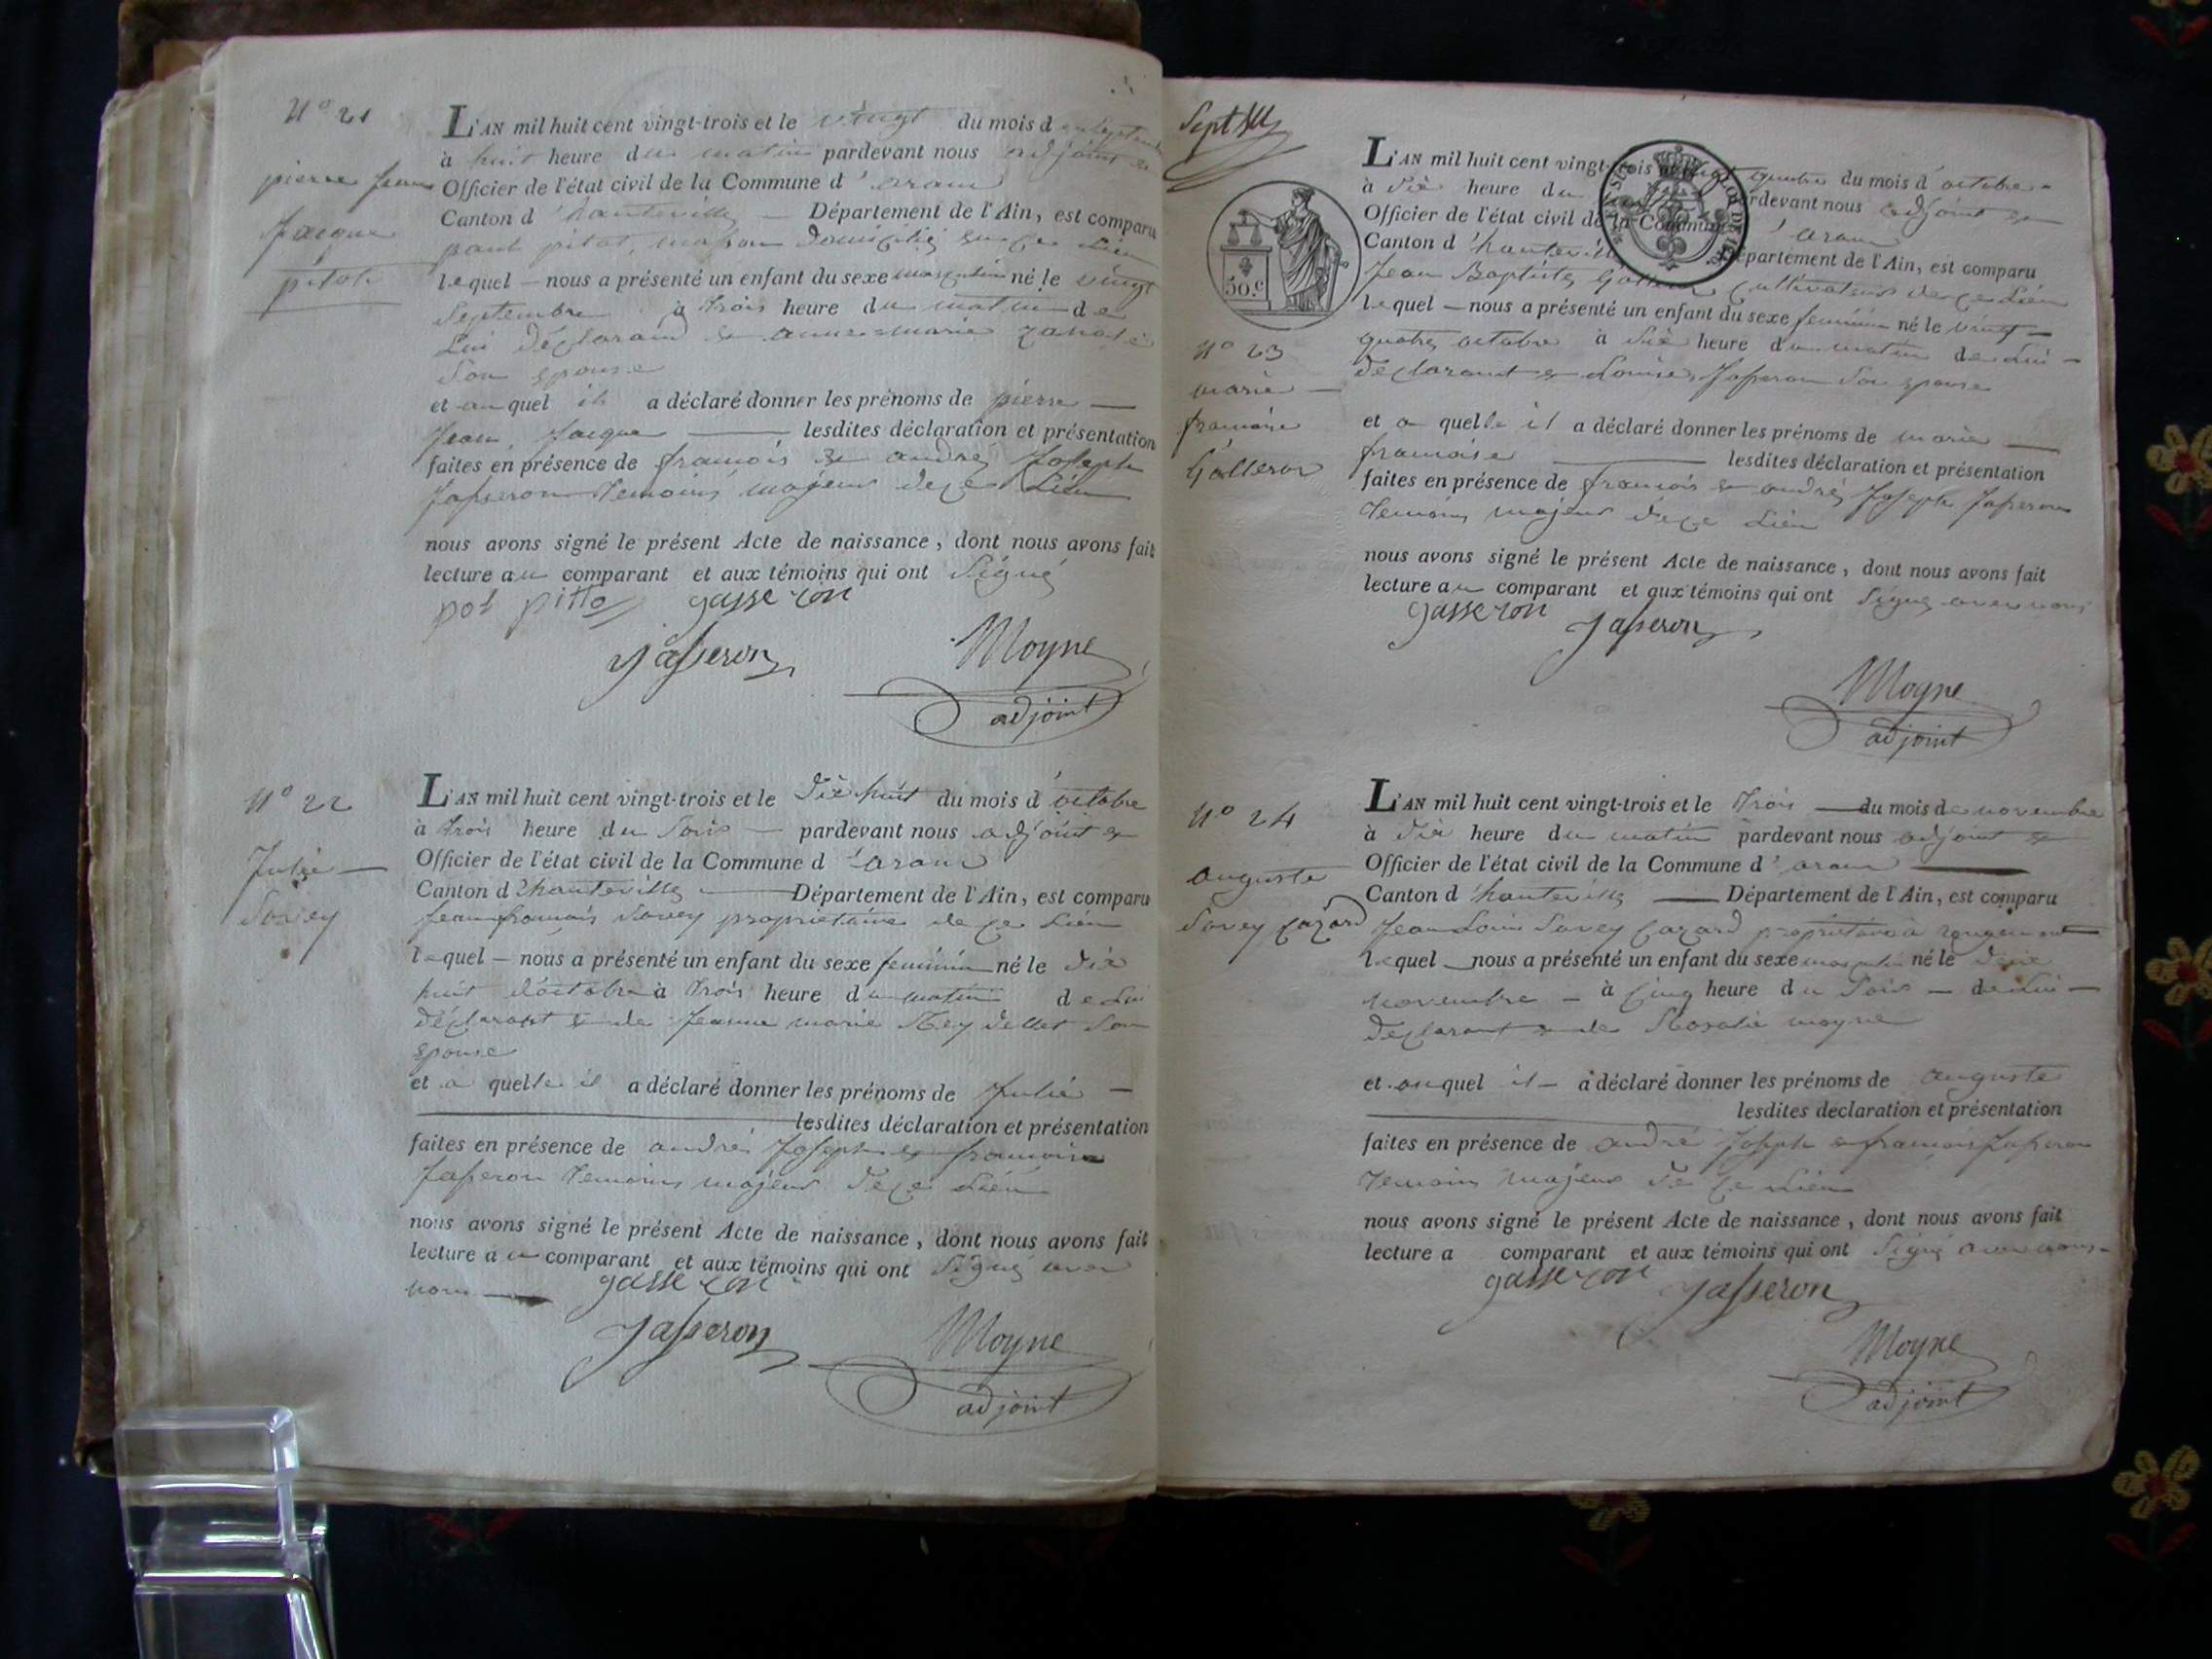 N° 21
pierre jean
Jacque
pitot
L'AN mil huit cent vingt-trois et le vingt du mois de septembre
à huit heure du matin pardevant nous adjoint et
Officier de l'état civil de la Commune d'aranc
Canton d'hauteville — Département de l'Ain, est comparu
paul pitot, maçon domicilié en ce Lieu
lequel — nous a présenté un enfant du sexe masculin né le vingt
Septembre à trois heure du matin de
Lui déclarant & anne-marie
Son epouse
et auquel il a déclaré donner les prénoms de pierre —
Jean, Jacque — lesdites déclaration et présentation
faites en présence de francois & andré Joseph
Jasseron temoins majeur de ce Lieu
nous avons signé le présent Acte de naissance, dont nous avons fait
lecture au comparant et aux témoins qui ont Signé
pol pitto gasseron
Jasseron Moyne
adjoint
N° 22
Julie —
Savey
L'AN mil huit cent vingt-trois et le dix huit du mois d'octobre
à trois heure du Soir — pardevant nous adjoint &
Officier de l'état civil de la Commune d'aranc
Canton d'hauteville — Département de l'Ain, est comparu
Jean francois Savey proprietaire de ce Lieu
lequel — nous a présenté un enfant du sexe feminin né le dix
huit d'octobre à trois heure du matin de Lui
déclarant & de Jeanne marie Rey Son
epouse
et a quelle il a déclaré donner les prénoms de Julie —
lesdites déclaration et présentation
faites en présence de andré Joseph & francois
Jasseron temoins majeur de ce Lieu
nous avons signé le présent Acte de naissance, dont nous avons fait
lecture au comparant et aux témoins qui ont Signé avec
nous — gasseron
Jasseron Moyne
adjoint
Sept
50.c
N° 23
marie —
francoise
Galleron
L'AN mil huit cent vingt-trois et le vingt quatre du mois d'octobre
à dix heure du pardevant nous adjoint &
Officier de l'état civil de la Commune d'aranc
Canton d'hauteville Département de l'Ain, est comparu
Jean Baptiste cultivateur de ce Lieu
lequel — nous a présenté un enfant du sexe feminin né le vingt —
quatre octobre à Six heure du matin de Lui —
declarant & Louise Jasseron Son epouse
et a quelle il a déclaré donner les prénoms de marie —
francoise — lesdites déclaration et présentation
faites en présence de francois & andré Joseph Jasseron
temoins majeur de ce Lieu
nous avons signé le présent Acte de naissance, dont nous avons fait
lecture au comparant et aux témoins qui ont Signé avec nous
gasseron Jasseron
Moyne
adjoint
N° 24
auguste
Savey cazard
L'AN mil huit cent vingt-trois et le trois — du mois de novembre
à dix heure du matin pardevant nous adjoint &
Officier de l'état civil de la Commune d'aranc —
Canton d'hauteville — Département de l'Ain, est comparu
Jean Louis Savey cazard proprietaire à rougemont
lequel — nous a présenté un enfant du sexe masculin né le deux
novembre — à cinq heure du Soir — de Lui —
declarant & de Rosalie moyne
et auquel il — a déclaré donner les prénoms de auguste
lesdites déclaration et présentation
faites en présence de andré Joseph & francois Jasseron
temoins majeur de ce Lieu
nous avons signé le présent Acte de naissance, dont nous avons fait
lecture a comparant et aux témoins qui ont Signé avec nous —
gasseron Jasseron
Moyne
adjoint